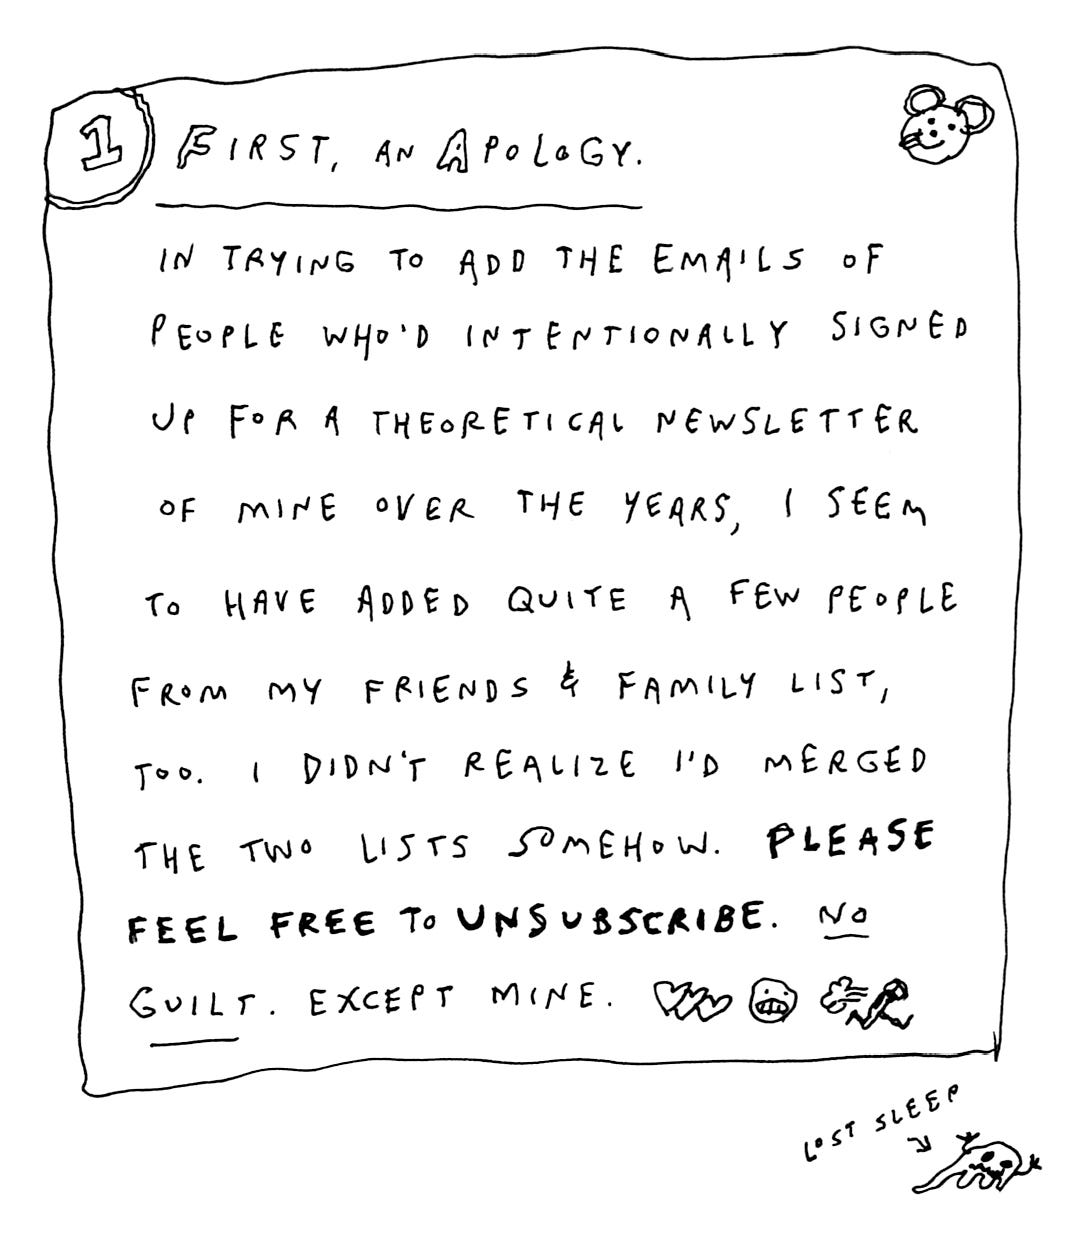 1
FIRST, AN APOLOGY.
IN TRYING TO ADD THE EMAILS OF
PEOPLE WHO'D INTENTIONALLY SIGNED
UP FOR A THEORETICAL NEWSLETTER
OF MINE OVER THE YEARS, I SEEM
TO HAVE ADDED QUITE A FEW PEOPLE
FROM MY FRIENDS & FAMILY LIST,
TOO. I DIDN'T REALIZE I'D MERGED
THE TWO LISTS SOMEHOW. PLEASE
FEEL FREE TO UNSUBSCRIBE. NO
GUILT. EXCEPT MINE.
LOST SLEEP